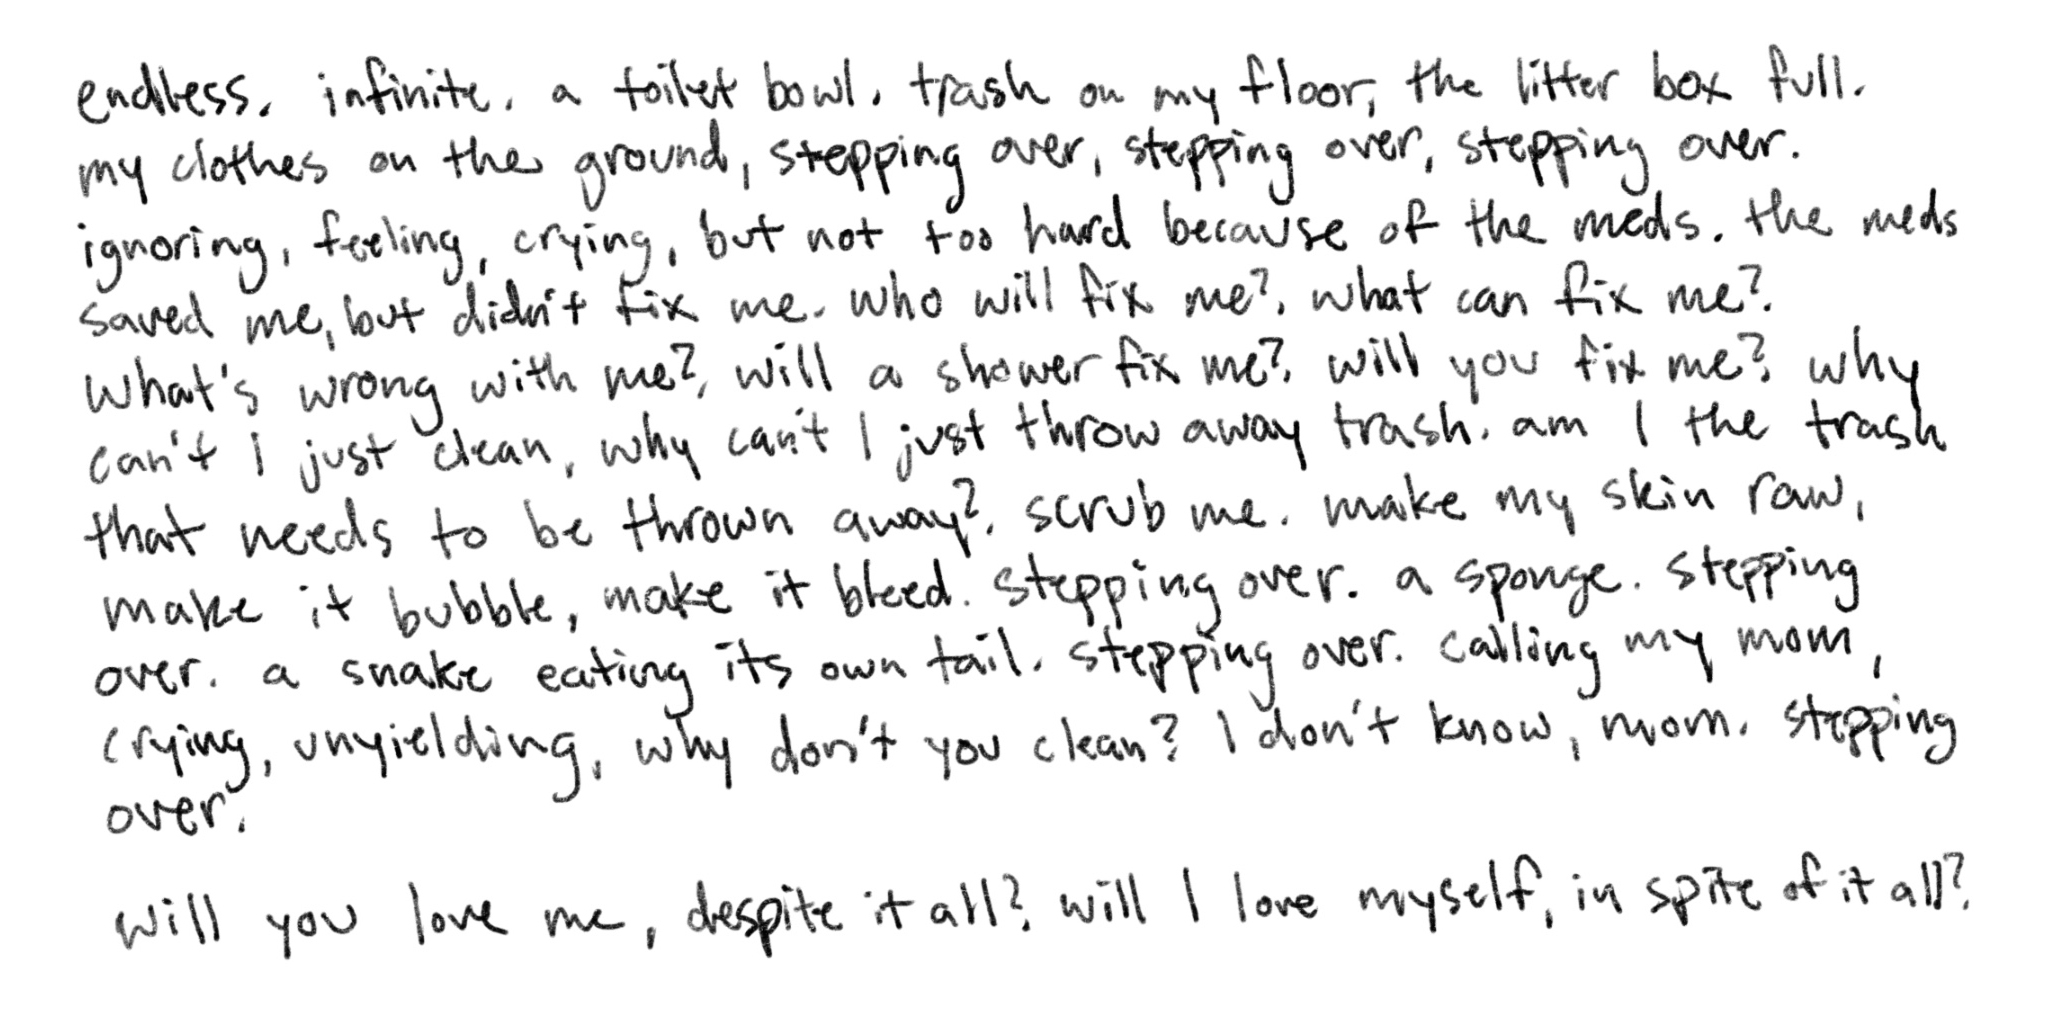 endless. infinite. a toilet bowl. trash on my floor, the litter box full.
my clothes on the ground, stepping over, stepping over, stepping over.
ignoring, feeling, crying, but not too hard because of the meds. the meds
saved me, but didn't fix me. who will fix me?. what can fix me?.
what's wrong with me?, will a shower fix me?. will you fix me?. why
can't I just clean, why can't I just throw away trash. am I the trash
that needs to be thrown away?. scrub me. make my skin raw,
make it bubble, make it bleed. stepping over. a sponge. stepping
over. a snake eating its own tail. stepping over. calling my mom,
crying, unyielding, why don't you clean? I don't know, mom. stepping
over.
will you love me, despite it all?. will I love myself, in spite of it all?.